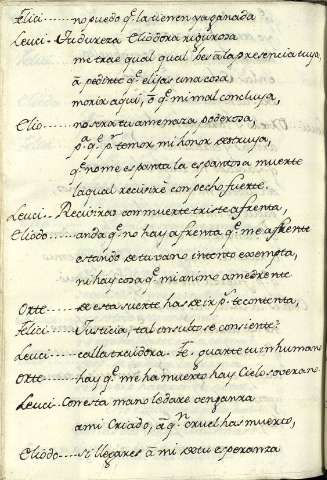 Felici...... no puedo q̃ la tienen ya ganada
Leuci... Tu dureza Eliodora rigurosa
me trae qual qual bes a la presencia tuya,
a pedirte q̃ elijas una cosa,
morir aqui, ó q̃ mi mal concluya,
Elio...... no sera tu amenaza poderosa,
pa q̃ pr temor mi honor destruya,
q̃ no me espanta la espantosa muerte
la qual recivire con pecho fuerte.
Leuci... Reciviras con muerte triste afrenta,
Eliodo...... anda q̃ no hay afrenta q̃ me afrente
estando de tu vano intento exempta,
ni hay cosa q̃ mi animo amedrente
Orte...... de esta suerte has de ir pr te contenta,
Felici...... Justicia, tal insulto se consiente?
Leuci...... calla traidora. Fe. guarte inhumano
Orte...... hay q̃ me ha muerto hay Cielo soverano
Leuci. Con esta mano le dare venganza
a mi Criado, á qn cruel has muerto,
Eliodo...... si llegares á mi pon esperanza